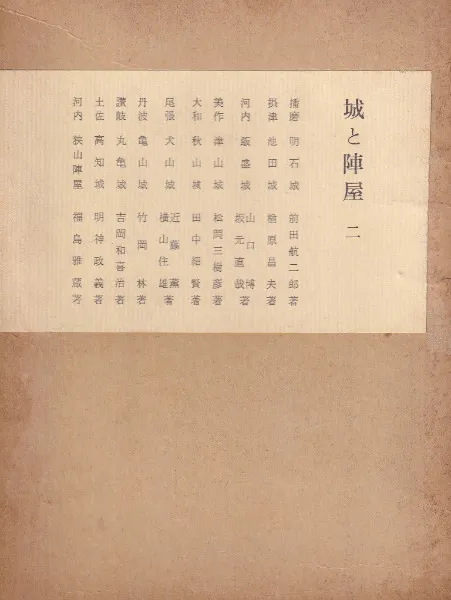 城と陣屋 二
播磨 明石城 前田航二郎著
摂津 池田城 檜原昌夫著
河内 飯盛城 山口博 坂元直哉著
美作 津山城 松岡三樹彦著
大和 秋山城 田中紹賢著
尾張 犬山城 近藤薫 横山住雄著
丹波 亀山城 竹岡林著
讃岐 丸亀城 吉岡和喜治著
土佐 高知城 明神政義著
河内 狭山陣屋 福島雅蔵著